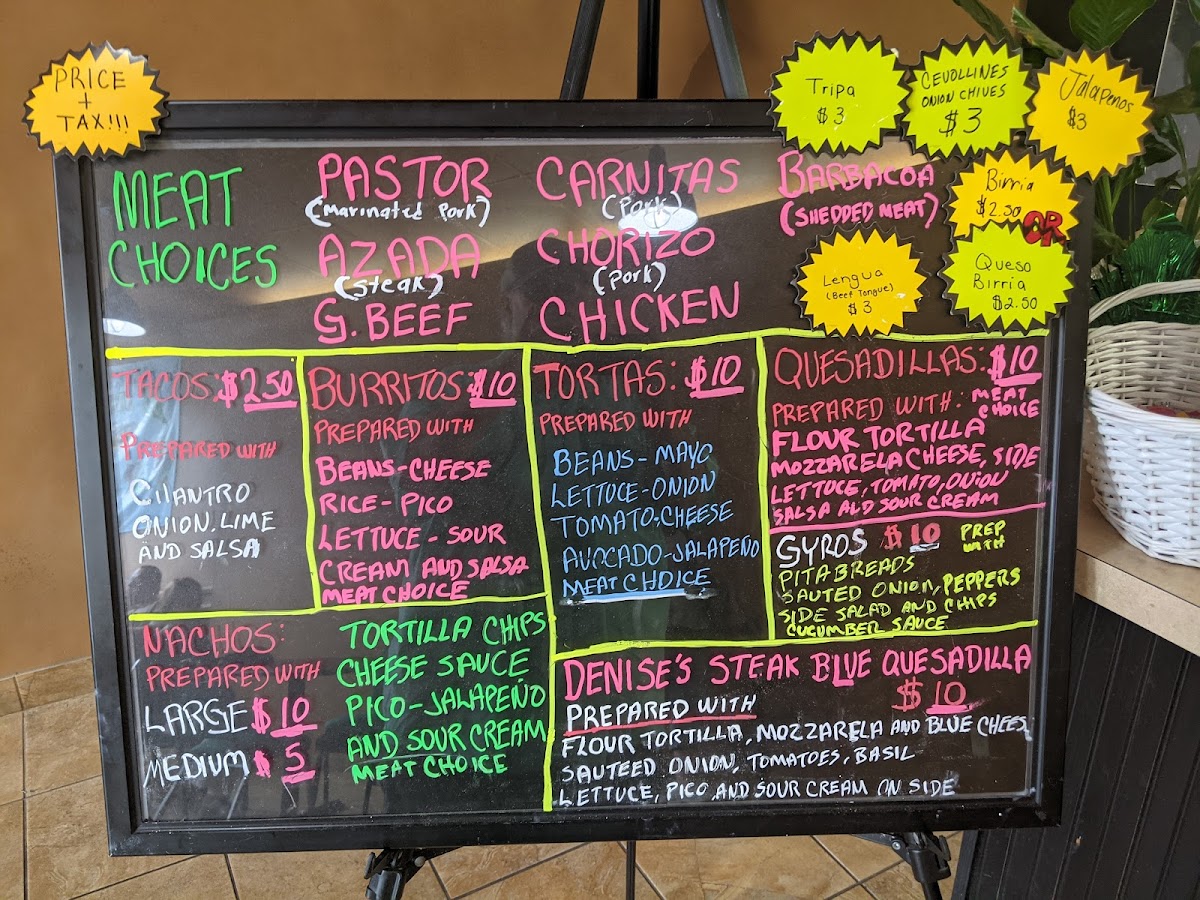 PRICE
+
TAX!!!
Tripa
$3
CEVOLLINES
ONION CHIVES
$3
Jalapenos
$3
MEAT
CHOICES
PASTOR
(Marinated Pork)
AZADA
(steak)
G. BEEF
CARNITAS
(Pork)
CHORIZO
(Pork)
CHICKEN
BARBACOA
(SHEDDED MEAT)
Birria
$2.50
OR
Lengua
(Beef Tongue)
$3
Queso
Birria
$2.50
TACOS: $2.50
PREPARED WITH
CILANTRO
ONION. LIME
AND SALSA
BURRITOS: $10
PREPARED WITH
BEANS-CHEESE
RICE-PICO
LETTUCE-SOUR
CREAM AND SALSA
MEAT CHOICE
TORTAS: $10
PREPARED WITH
BEANS-MAYO
LETTUCE-ONION
TOMATO-CHEESE
AVOCADO-JALAPEÑO
MEAT CHOICE
QUESADILLAS: $10
PREPARED WITH: MEAT
CHOICE
FLOUR TORTILLA
MOZZARELA CHEESE, SIDE
LETTUCE, TOMATO, ONION
SALSA AND SOUR CREAM
GYROS $10 PREP
WITH
PITA BREADS
SAUTED ONION, PEPPERS
SIDE SALAD AND CHIPS
CUCUMBER SAUCE
NACHOS:
PREPARED WITH
LARGE $10
MEDIUM $5
TORTILLA CHIPS
CHEESE SAUCE
PICO-JALAPEÑO
AND SOUR CREAM
MEAT CHOICE
DENISE'S STEAK BLUE QUESADILLA
$10
PREPARED WITH
FLOUR TORTILLA, MOZZARELA AND BLUE CHEES
SAUTEED ONION, TOMATOES, BASIL
LETTUCE, PICO AND SOUR CREAM ON SIDE